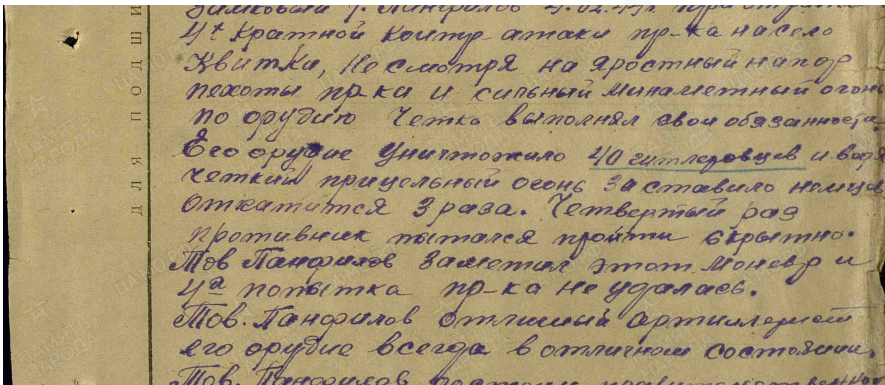 Замковый т. Панфилов
4х кратной контр атаки пр-ка на село
Квитки, Не смотря на яростный напор
пехоты пр-ка и сильный минаметный огонь
по орудию четко выполнял свои обязанности.
Его орудие уничтожило 40 гитлеровцев и ведя
четкий прицельный огонь заставило немцев
откатится 3 раза. Четвертый раз
противник пытался пройти скрытно.
Тов Панфилов заметил этот моневр и
4а попытка пр-ка не удалась.
Тов. Панфилов отличный артиллерист
его орудие всегда в отличном состоянии.
Тов. Панфилов достоин
ДЛЯ ПОДШИ